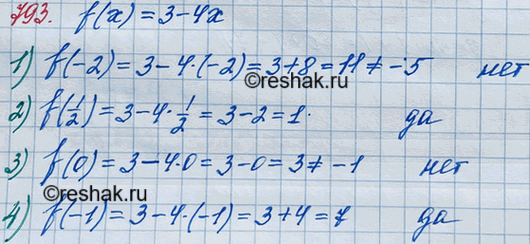 793. f(x) = 3 - 4x
1) f(-2) = 3 - 4·(-2) = 3 + 8 = 11 ≠ -5 нет
©reshak.ru
2) f(1/2) = 3 - 4·1/2 = 3 - 2 = 1. да
3) f(0) = 3 - 4·0 = 3 - 0 = 3 ≠ -1 нет
©reshak.ru
4) f(-1) = 3 - 4·(-1) = 3 + 4 = 7 да